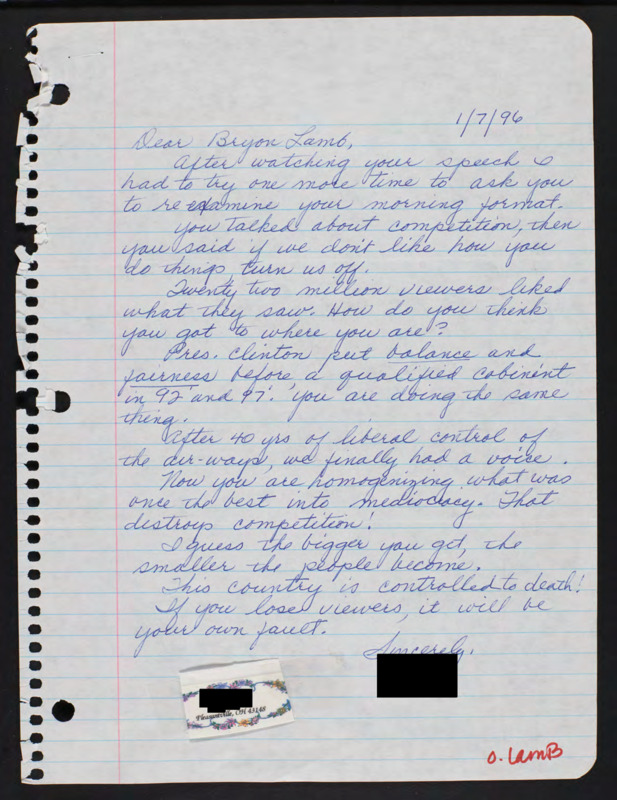 1/7/96
Dear Bryon Lamb,
After watching your speech I
had to try one more time to ask you
to re examine your morning format.
you talked about competition, then
you said if we don't like how you
do things, turn us off.
Twenty two million viewers liked
what they saw. How do you think
you got to where you are?
Pres. Clinton put balance and
fairness before a qualified cabinent
in 92' and 97'. you are doing the same
thing.
After 40 yrs of liberal control of
the air-ways, we finally had a voice.
Now you are homogenizing what was
once the best into mediocacy. That
destroys competition!
I guess the bigger you get, the
smaller the people become.
This country is controlled to death!
If you lose viewers, it will be
your own fault.
Sincerely,
Pleasantville, OH 43148
O. LamB